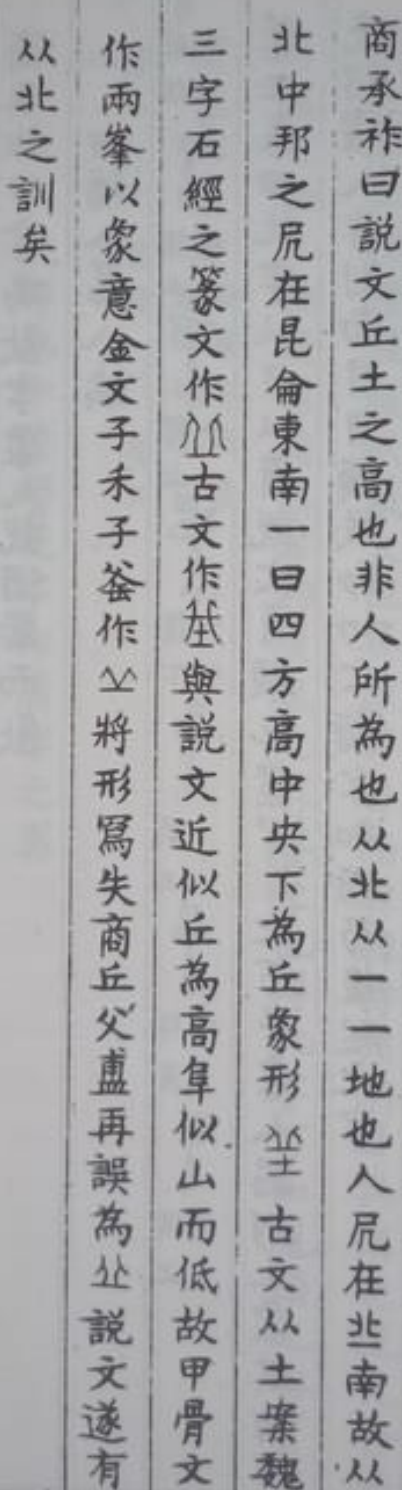 商承祚曰説文丘土之高也非人所為也从北从一一地也人凥在丠南故从
北中邦之凥在昆侖東南一曰四方高中央下為丘象形𡊣古文从土案魏
三字石經之篆文作古文作𡊣與説文近似丘為高阜似山而低故甲骨文
作兩峯以象意金文子禾子釜作將形寫失商丘父盙再誤為説文遂有
从北之訓矣